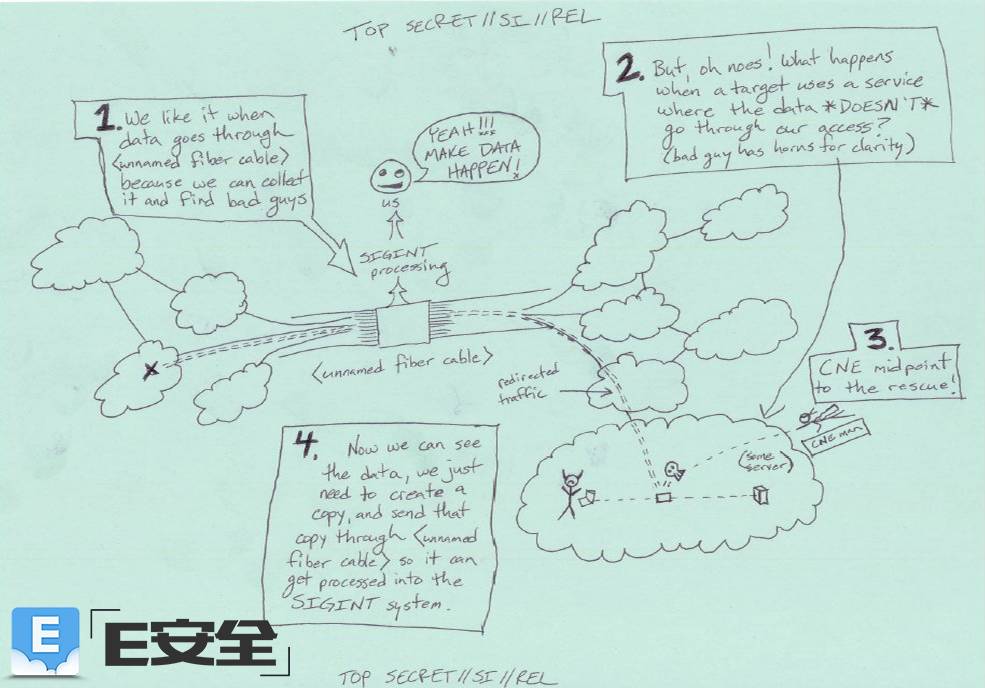 TOP SECRET//SI//REL
1. We like it when
data goes through
<unnamed fiber cable>
because we can collect
it and find bad guys
YEAH!!!
MAKE DATA
HAPPEN!
us
SIGINT
processing
2. But, oh noes! What happens
when a target uses a service
where the data *DOESN'T*
go through our access?
(bad guy has horns for clarity)
<unnamed fiber cable>
redirected
traffic
3.
CNE midpoint
to the rescue!
CNE man
(some
server)
4. Now we can see
the data, we just
need to create a
copy, and send that
copy through <unnamed
fiber cable> so it can
get processed into the
SIGINT system.
E
E安全
TOP SECRET//SI//REL